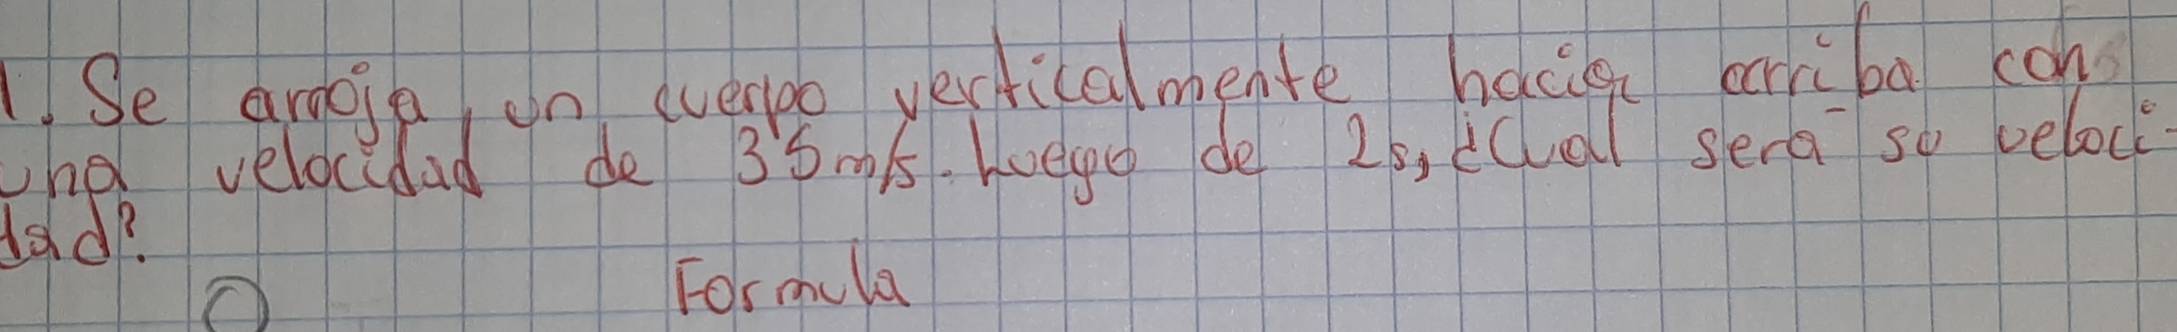 1. Se arroja un cuerpo verticalmente hacia arriba con
una velocidad de 35 m/s. Luego de 2s, ¿Cual será su veloci-
dad?
Formula